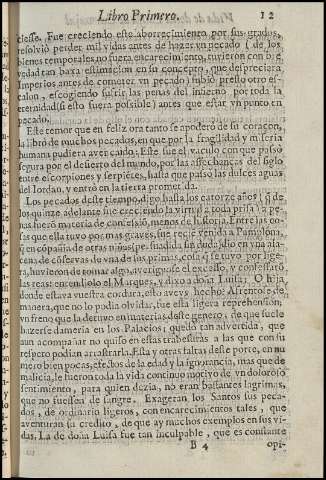 Libro Primero. 12
ciesse. Fue creciendo este aborrecimiento por sus grados,
resolviò perder mil vidas antes de hazer vn pecado (de los
bienes temporales no fuera encarecimiento, tuvieron con brevedad
tan baxa estimacion en su concepto, que despreciara
Imperios antes de cometer vn pecado) subiò presto otro escalon,
escogiendo sufrir las penas del infierno, por toda la
eternidad (si esto fuera possible) antes que estar vn punto en
pecado.
Este temor que en feliz ora tanto se apoderò de su coraçon,
la librò de muchos pecados, en que por la fragilidad y miseria
humana pudiera aver caido: Este fue el vaculo con que passò
segura por el desierto del mundo, por las assechanças del siglo
entre escorpiones y serpiẽtes, hasta que passò las dulces aguas
del Iordan, y entrò en la tierra prometida.
Los pecados deste tiempo, digo hasta los catorze años (que de
los quinze adelante fue creciendo la virtud a toda prisa)
hero materia de confession, menos de historia. Entre las cosas
que ella tuvo por mas graves, fue recie venida a Pamplona,
en cõpañia de otras niñas persuadida sin duda dio en vna alacena
de cõservas de vna de sus primas, cosa que se tuvo por ligera,
huvieron de tomar algo, averiguose el excesso, y confessarõ
las reas: entendiolo el Marques, y dixo a doña Luisa: O hija,
donde estava vuestra cordura, esto aveys hecho? Afrentose de
manera, que no lo pudia olvidar, fue esta ligera reprehension,
vn freno que la detuvo en materias deste genero, de que suele
hazerse dameria en los Palacios; quedò tan advertida, que
aun acompañar no quiso en estas travesuras a las que con su
respeto podian arrastrarla. Esta y otras faltas deste porte, en numero
bien pocas, efectos de la edad y la ignorancia, mas que de
malicia, le fueron toda la vida continuo motivo de vn doloroso
sentimiento, para quien dezia, no eran bastantes lagrimas,
que no fuessen de sangre. Exageran los Santos sus pecados,
de ordinario ligeros, con encarecimientos tales, que
aventuran su credito, de que ay muchos exemplos en sus vidas.
La de doña Luisa fue tan inculpable, que es constante
B 4 opi-